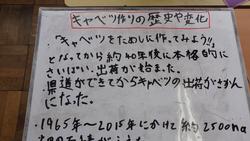 キャベツ作りの歴史や変化
・「キャベツをためしに作ってみよう!!」
となってから約40年後に本格的に
さいばい、出荷が始まった。
県道ができてからキャベツの出荷がさかん
になった。
・1965年〜2015年にかけて約2500ha